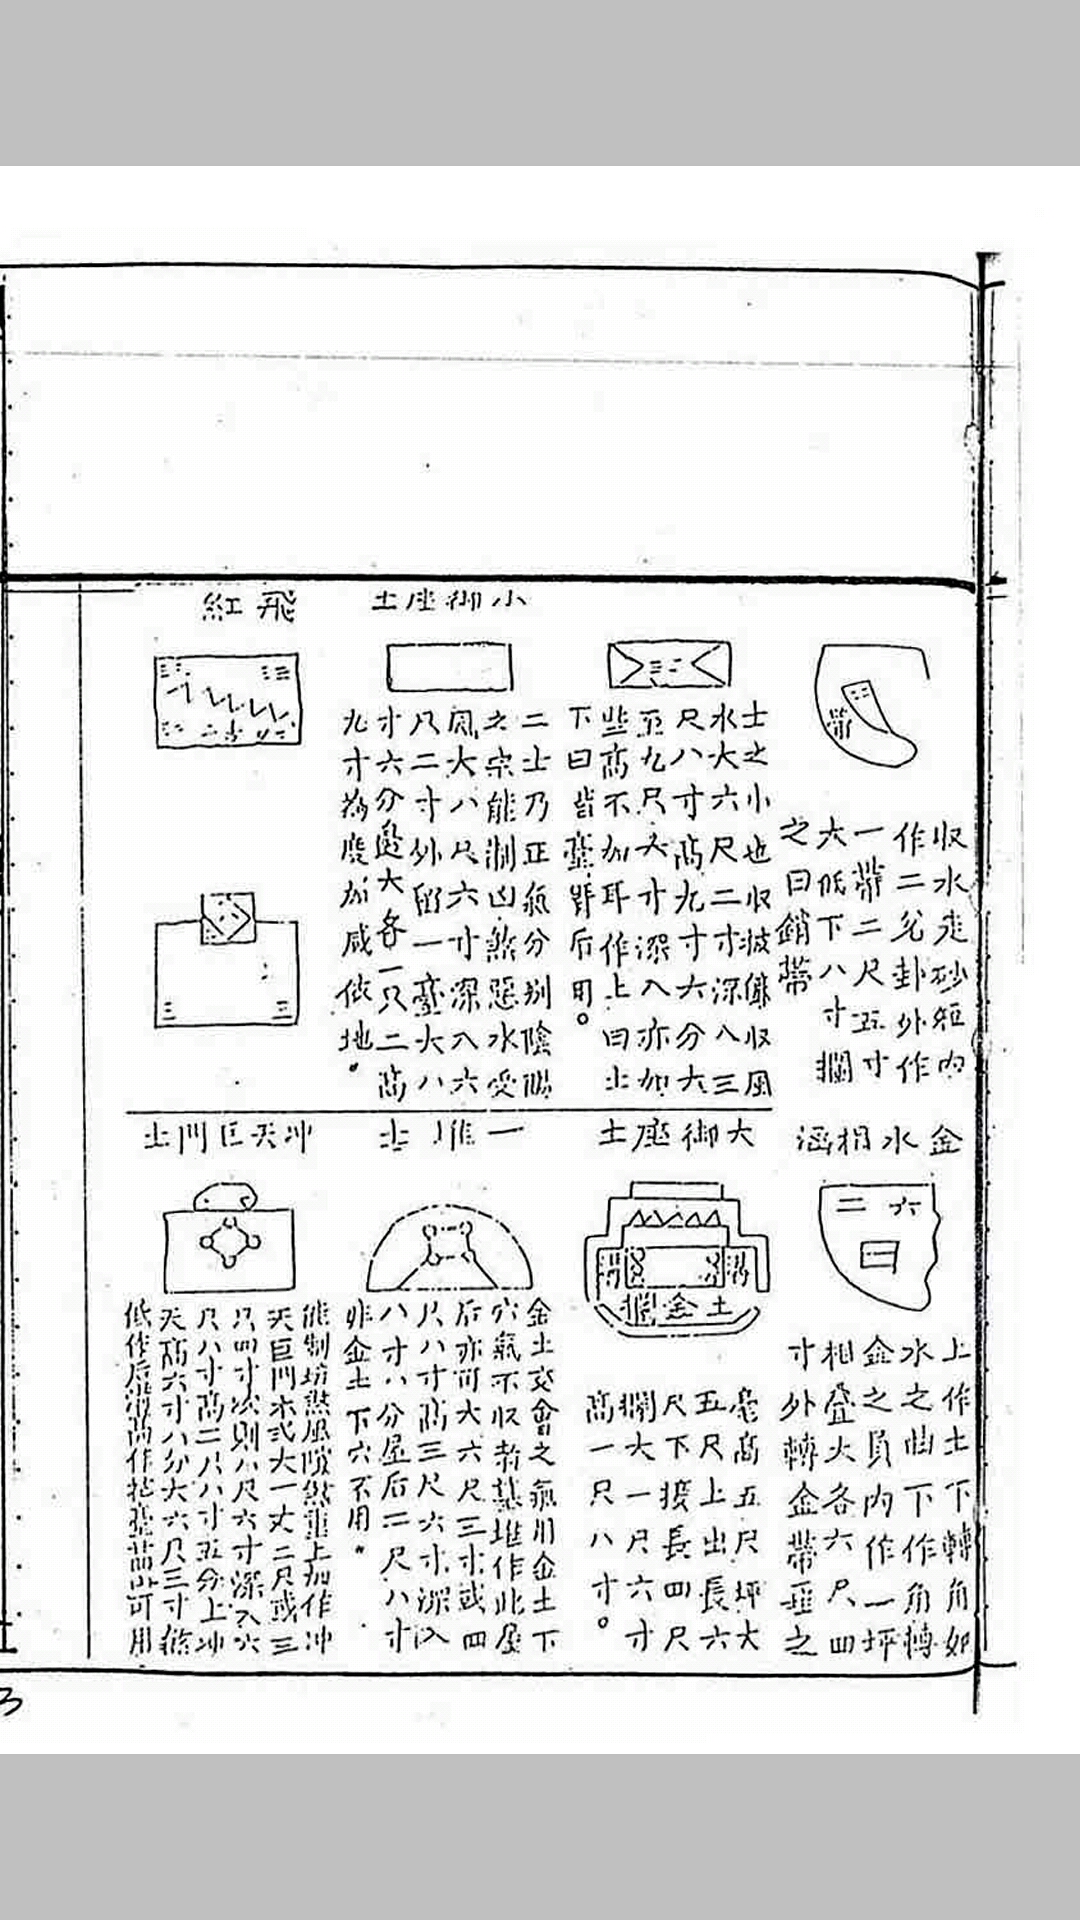 收水走砂短内
作二兊卦外作
一帶二尺五寸
大低下八寸攔
之曰銷帶
士之小也收披
收風
水大六尺二寸深八三
尺八寸高九寸六分大
至九尺大寸深入亦加
些高不加耳作上曰土
下曰皆臺
后用。
小御座土
二士乃正氣分别陰陽
之宗能制凶煞惡水受
風大八尺六寸深入六
尺二寸外留一臺大八
寸六分邉大各一尺二高
九寸為度加咸依地。
飛紅
金水相涵
上作士下轉角如
水之曲下作角轉
金之員内作一坪
相疊大各六尺四
寸外轉金帶
之
二六
曰
大御座土
土金攔
毫高五尺坪大
五尺上出長六
尺下接長四尺
攔大一尺六寸
高一尺八寸。
一堆土
金土交會之氣用金土下
穴氣不收
墓堆作此屋
后亦可大六尺三寸或四
尺八寸高三尺六寸深入
八寸八分屋后二尺八寸
非金土下穴不用。
冲天巨門土
能制坊煞風
煞重上加作冲
天巨門木式大一丈二尺或三
尺四寸次則八尺六寸深入六
尺八寸高二尺八寸五分上冲
天高六寸八分大六尺三寸
低作后
高作
可用
3